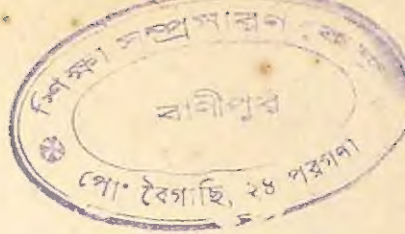 শিক্ষা সম্প্রসারণ
বানীপুর
পো° বৈগাছি, ২৪ পরগনা